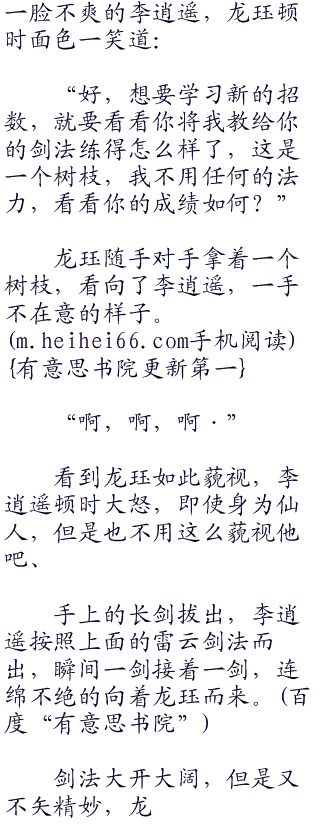 一脸不爽的李逍遥，龙珏顿
时面色一笑道：
“好，想要学习新的招
数，就要看看你将我教给你
的剑法练得怎么样了，这是
一个树枝，我不用任何的法
力，看看你的成绩如何？”
龙珏随手对手拿着一个
树枝，看向了李逍遥，一手
不在意的样子。
(m.heihei66.com手机阅读)
{有意思书院更新第一}
“啊，啊，啊·”
看到龙珏如此藐视，李
逍遥顿时大怒，即使身为仙
人，但是也不用这么藐视他
吧、
手上的长剑拔出，李逍
遥按照上面的雷云剑法而
出，瞬间一剑接着一剑，连
绵不绝的向着龙珏而来。(百
度“有意思书院”)
剑法大开大阔，但是又
不矢精妙，龙